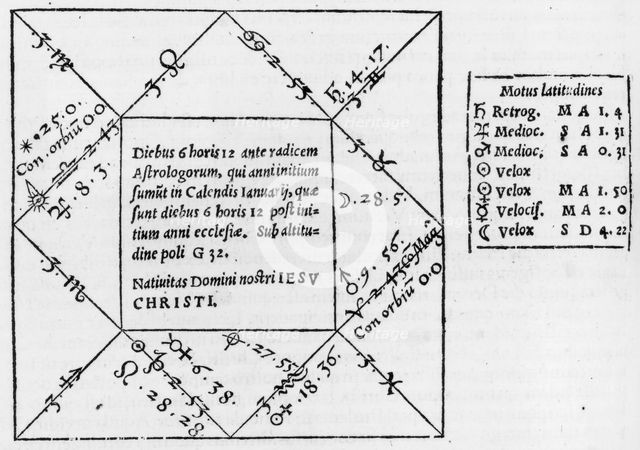 Diebus 6 horis 12 ante radicem
Astrologorum, qui anni initium
sumūt in Calendis Ianuarij, quæ
sunt diebus 6 horis 12 post ini-
tium anni ecclesiæ. Sub altitu-
dine poli G 32.
Natiuitas Domini nostri IESV
CHRISTI.
3. ♏
3. ♌
♋ 2. 55
♄. 14. 17.
3. ♊
3. ♉
☽. 28. 5.
♂. 9. 56.
♈ 2. 43
Co Mag
Con orbiū 0 0
3. ♓
3. ♒
♀. 18. 36.
♑ 2. 33
☿. 6. 38.
☊ 28. 28.
3. ♐
3. ♏
♃. 8. 3.
♎ 2. 43
Con. orbiū 0 0
*. 25. 0.
Motus latitudines
♄ Retrog. M A 1. 4
♃ Medioc. S A 1. 31
♂ Medioc; S A 0. 31
☉ Velox
♀ Velox M A 1. 50
☿ Velocis. M A 2. 0
☾ Velox S D 4. 22
Heritage